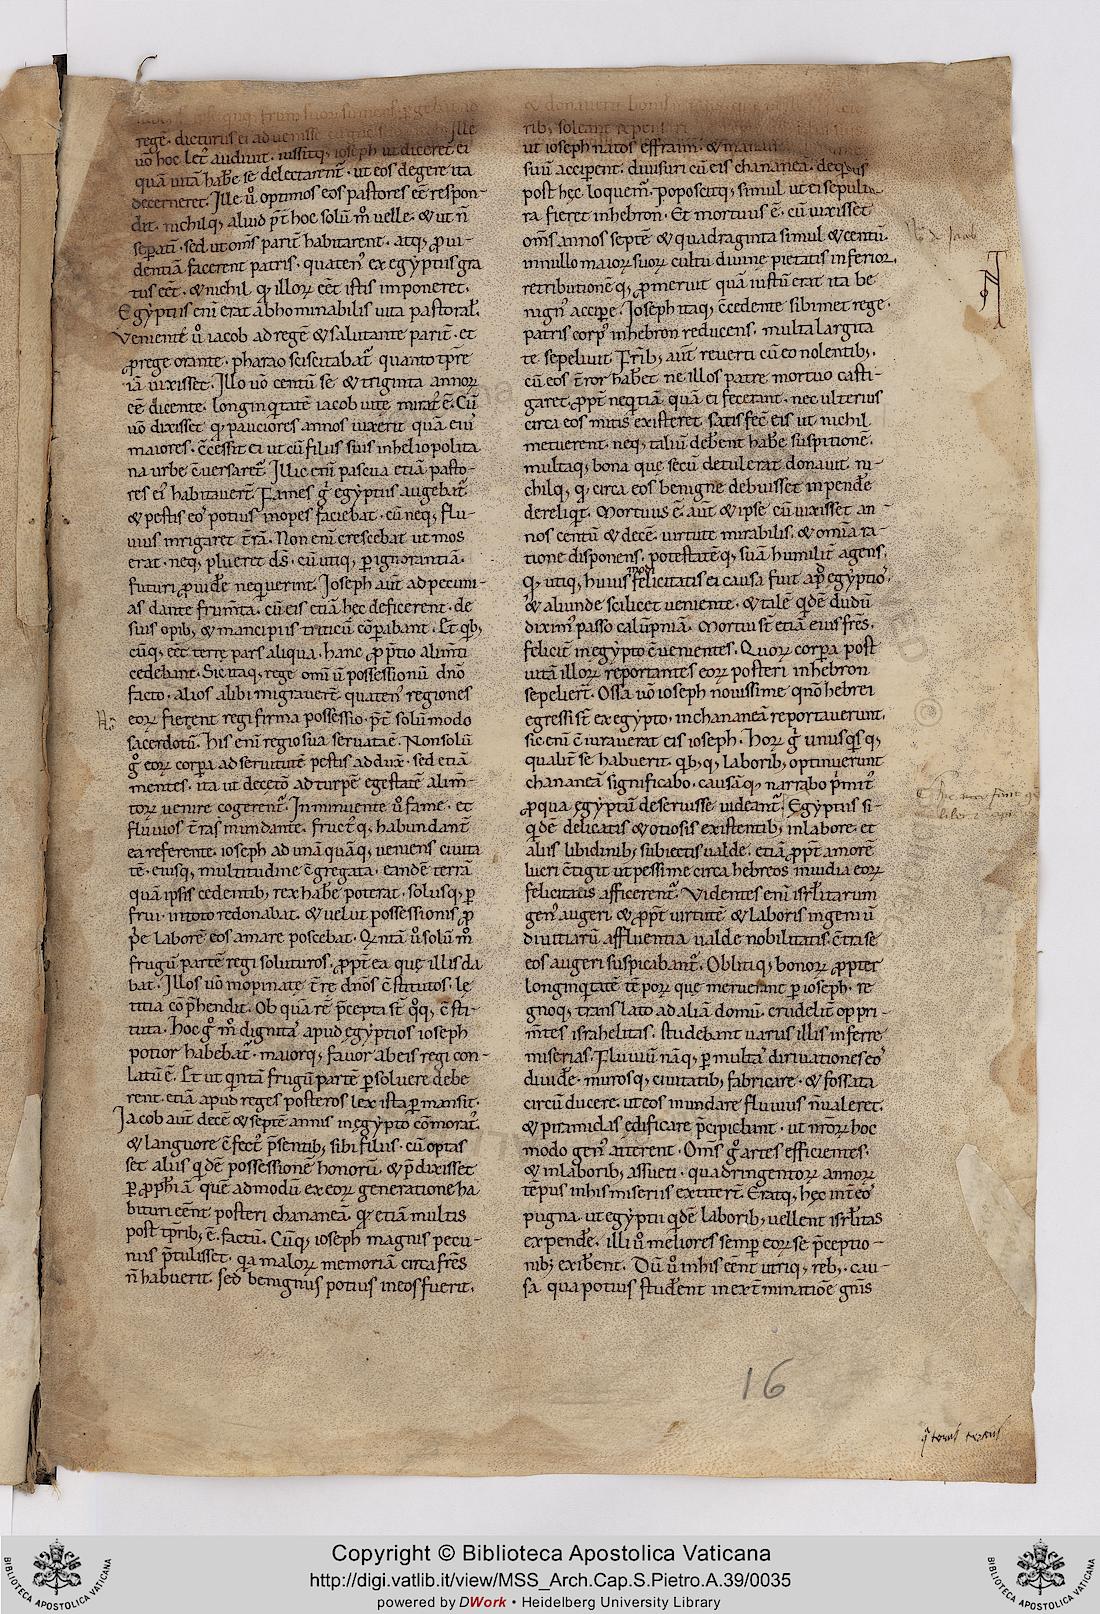 regē. dicturus ei advenisse
uo hoc letˀ audiuit. iussitq; ioseph ut diceret ei
quā uitā habˉe se delectarentˀ. ut eos degere ita
decerneret. Ille ů optimos eos pastores eē̄ respon-
dit. nichilq; aliud pt̄ hoc solū m̄ uelle. & ut n̄
sepatī. sed ut om̄s parit̄ habitarent. atq; ꝓui-
dentiā facerent patris. quatenˀ ex egyptus gra
tus eēt. & nichil qđ illorꝝ eēt istis imponeret.
Egyptus eni erat abhominabilis uita pastoral̄.
Veniente ů iacob ad regē & salutante parit̄. et
ꝓ rege orante. pharao sciscitabatˀ quanto tp̄re
iā uixisset. Illo uō centū se & triginta annorꝝ
eē̄ dicente. longinq̇tatē iacob uitę miratˀ ē. Cū
uō dixisset qđ pauciores annos uixerit quā eiˀ
maiores. c̄cessit ei ut cū filiis suis in heliopolita
na urbe c̄uersaretˀ. Illic eni pascua etiā pasto-
res eiˀ habitauert̄. Fames g̊ egyptus augebatˀ
& pestis eoˀ potius inopes faciebat. cū neq; flu-
uius inrigaret t̄rā. Non eni crescebat ut mos
erat. neq; plueret dˉs. cū utiq; ꝑ ignorantiā
futuri ꝓuidˉe nequerint. Ioseph aut̄ ad pecuni-
as dante frum̄ta. cū eis etiā hęc deficerent. de
suis opib; & mancipiis triticū cōparabant. Et q̇b;
cūq; eēt terrę pars aliqua. hanc ꝓ p̄tio alimt̄i
cedebant. Sic itaq; rege omiū possessionū dn̄o
facto. alios alibi migrauert̄. quatenˀ regiones
eorꝝ fierent regi firma possessio. pt̄ solū modo
sacerdotū. His eni regio sua seruata ē. Non solū
g̊ eorꝝ corpa ad seruitutē pestis adduxˉ. sed etiā
mentes. ita ut decetō ad turpē egestatē alim̄-
torꝝ uenire cogerentˀ. Inminuente ů fame. et
fluuios t̄ras inundante. fructˀq; habundant̄
ea referente. ioseph ad unā quāq; ueniens ciuita
tē. eiusq; multitudine c̄gregata. eandē terrā
quā ipsis cedentib; rex habˉe poterat. solusq; ꝑ
frui. in toto redonabat. & uelut possessionis ꝓ
p̄e laborē eos amare poscebat. Q̇ntā ů solū m̄
frugū partē regi soluturos. ꝓpt̄ ea quę illis da
bat. Illos uō inopinate t̄rę dn̄os c̄stitutos. lę
titia cōp̄hendit. Ob quā rē p̄cepta st̄ q̊q; c̄sti-
tuta. Hoc g̊ m̄ dignitasˀ apud ęgyptios ioseph
potior habebatˀ. maiorq; fauor ab eis regi con-
latū ē. Et ut q̇ntā frugū partē ꝑsoluere debe
rent. etiā apud reges posteros lex ista ꝑmansit.
Iacob aut̄ decē & septē annis in ęgypto cōmoratˀ.
& languore c̄fectˀ p̄sentib; sibi filiis. cū optas
set aliis q̇dē possessionē honorū. & p̄dixisset
ꝑ ꝓphiā quē admodū ex eorꝝ generatione ha
bituri eēnt posteri chananeā. qđ etiā multis
post tp̄rib; ē factū. Cūq; ioseph magnis pecu-
niis p̄tulisset. qa malorꝝ memoriā circa fr̄es
n̄ habuerit. sed benignius potius in eos fuerit.
rib; soleant
ut ioseph natos effraim. & manas
suū acciperent. diuisuri cū eis chananeā. de quibus
post hęc loquem̄. Poposcitq; simul ut ei sepultu
ra fieret in hebron. Et mortuus ē. cū uixisset
om̄s annos septē & quadraginta simul & centū.
in nullo maiorꝝ suorꝝ cultu diuinę pietatis inferior.
retributionēq; ꝓmeruit quā iustū erat ita be
nignˀ accipe. Ioseph itaq; c̄cedente sibimet rege.
patris corpˀ in hebron reducens. multa largita
te sepeliuit. Fr̄ib; aut̄ reuerti cū eo nolentib;
cū eos t̄ror habˉet ne illos patre mortuo casti-
garet. ꝓpt̄ neq̇tiā quā ei fecerant. nec ulterius
circa eos mitis existeret. satisfec̄ eis ut nichil
metuerent. neq; taliū debˉent habˉe suspitionē.
multaq; bona quę secū detulerat donauit. ni-
chilq; qđ circa eos benigne debuisset inpendˉe
dereliq̇t. Mortuus ē aut̄ & ipse cū uixisset an-
nos centū & decē. uirtute mirabilis. & omīa ra-
tione disponens. potestatēq; suā humilit̄ agens.
q; utiq; huiusmodi felicitatis ei causa fuit apˉ egyptioˀ
& aliunde scilicet ueniente. & talē q̇dē dudū
diximˀ passo calūpniā. Mortui st̄ etiā eius fr̄es.
felicit̄ in egypto c̄uenientes. Quorꝝ corpa post
uitā illorꝝ reportantes eorꝝ posteri in hebron
sepeliert̄. Ossa uō ioseph nouissime qn̄o hebrei
egressi st̄ ex egypto. in chananeā reportauerunt.
sic eni c̄iurauerat eis ioseph. Horꝝ g̊ unusq̇sq;
qualit̄ se habuerit. q̇b;q; laborib; optinuerunt
chananeā significabo. causāq; narrabo p̄mitˀ
ꝓ qua ęgyptū deseruisse uideantˀ. Egyptus si-
q̇dē delicatis & otiosis existentib; in labore. et
aliis libidinib; subiectis ualde. etiā ꝓpt̄ amorē
lucri c̄tigit ut pessime circa hebreos inuidia eorꝝ
felicitatis afficerentˀ. Videntes eni isrl̄itarum
genˀ augeri & ꝓpt̄ uirtutē & laboris ingeniū
diuitiarū affluentia ualde nobilitatis. c̄tra se
eos augeri suspicabantˀ. Obliti q; bonorꝝ ꝓpter
longinq̇tatē tēporꝝ quę meruerant ꝑ ioseph. re
gnoq; translato ad aliā domū. crudelit̄ oppri-
m̄tes israhelitas. studebant uarias illis inferre
miserias. Fluuiū naq; ꝑ multas diriuationes eoˀ
diuidˉe. murosq; ciuitatib; fabricare. & fossata
circūducere. ut eos inundare fluuius n̄ ualeret.
& piramidas ędificare p̄cipiebant. ut nr̄orꝝ hoc
modo genˀ attererent. Om̄s g̊ artes efficientes.
& in laborib; assueti. quadringentorꝝ annorꝝ
tēpus in his miseriis extitert̄. Eratq; hęc int̄ eoˀ
pugna. ut egyptii q̇dē laborib; uellent isrl̄itas
expendˉe. illi ů meliores semp eorꝝ se p̄ceptio-
nib; exibˉent. Dū ů in his eēnt utriq; reb; cau-
sa qua potius studˉent in ext̄minatiōe gn̄is
16
Copyright © Biblioteca Apostolica Vaticana
http://digi.vatlib.it/view/MSS_Arch.Cap.S.Pietro.A.39/0035
powered by DWork • Heidelberg University Library
BIBLIOTECA APOSTOLICA VATICANA
BIBLIOTECA APOSTOLICA VATICANA